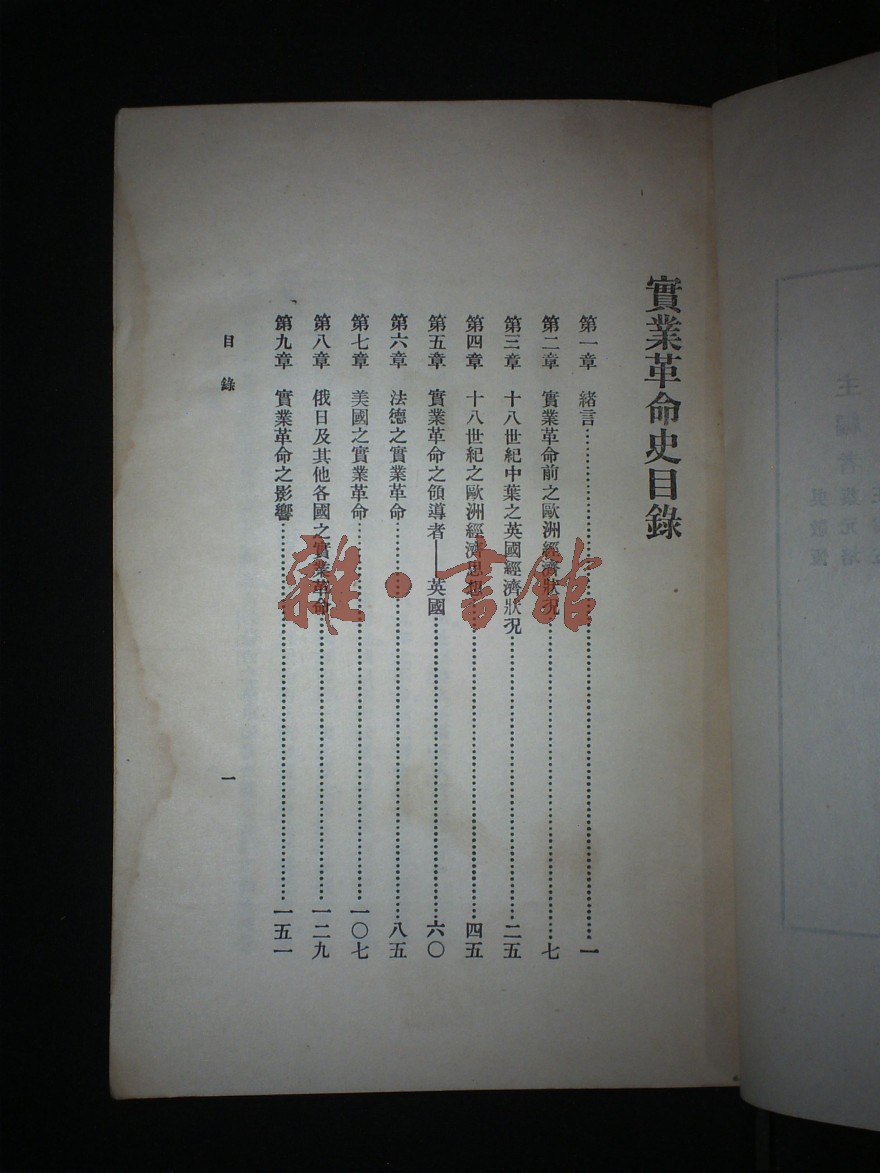 實業革命史目錄
第一章 緒言……一
第二章 實業革命前之歐洲經濟狀況……七
第三章 十八世紀中葉之英國經濟狀況……二五
第四章 十八世紀之歐洲經濟思想……四五
第五章 實業革命之領導者——英國……六〇
第六章 法德之實業革命……八五
第七章 美國之實業革命……一〇七
第八章 俄日及其他各國之實業革命……一二九
第九章 實業革命之影響……一五一
目錄
一
雜·書館
主編者蔡元培
吳敬恆